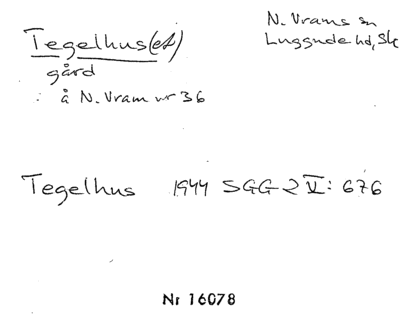 Tegelhus(et)
gård
å N. Vram nr 36
N. Vrams sn
Luggude hd, Sk
Tegelhus 1944 SGG 2 V: 676
Nr 16078